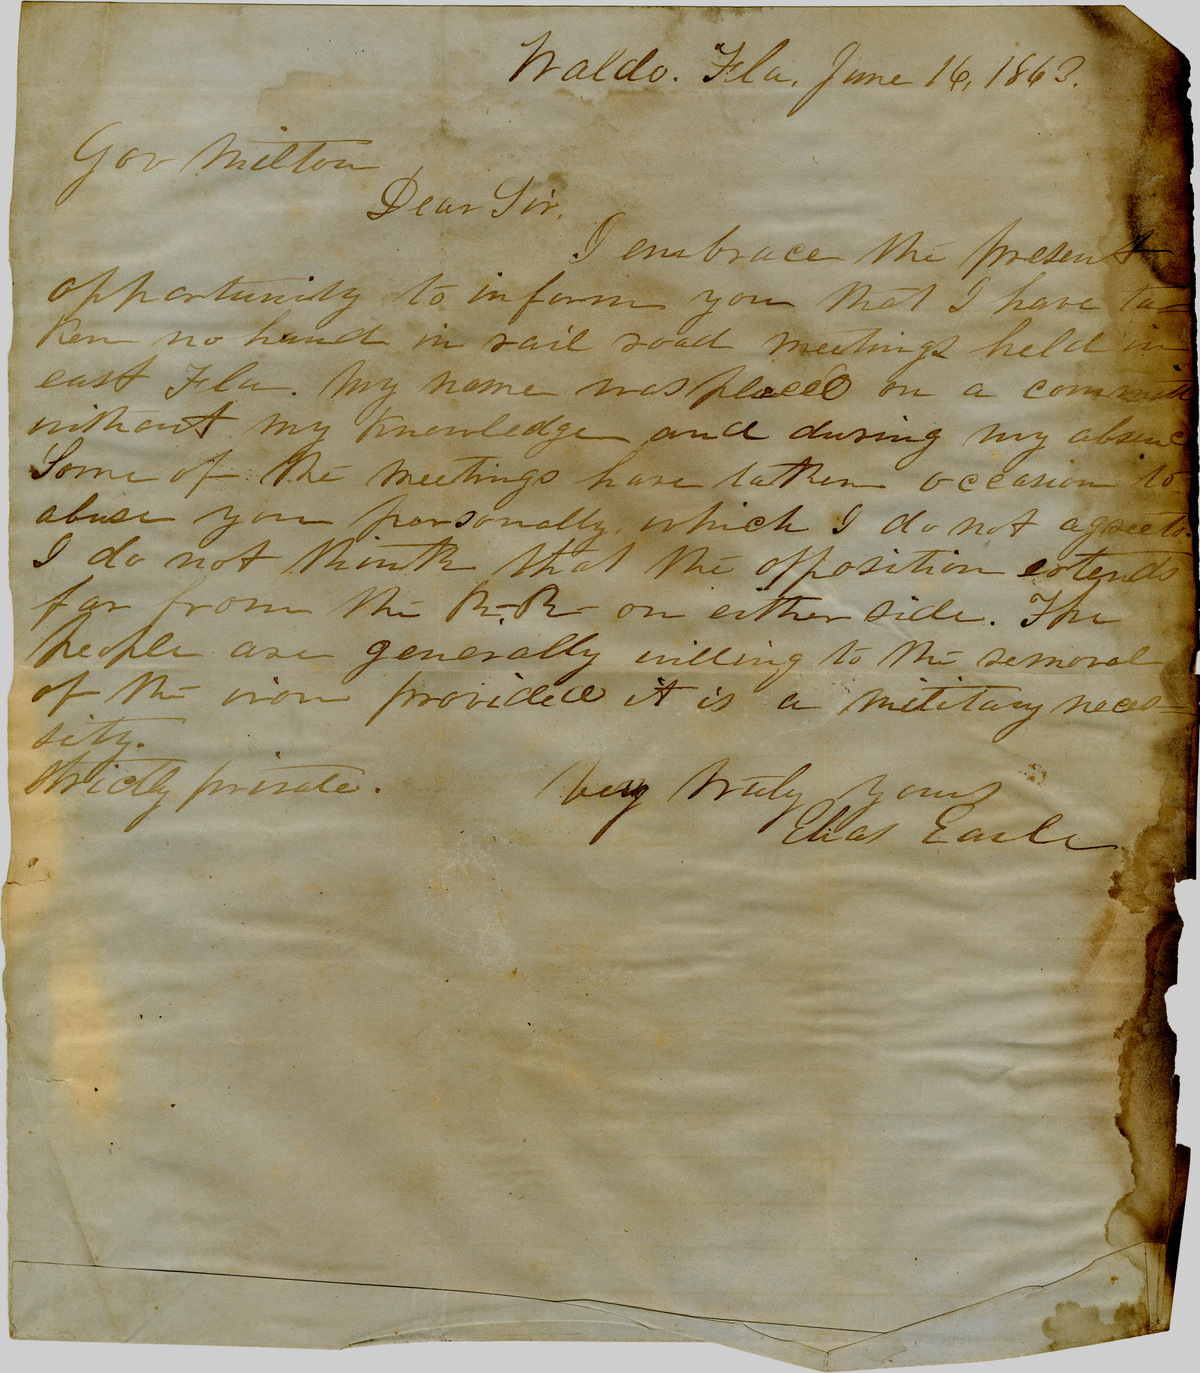 Waldo. Fla. June 16, 1863.
Gov Milton
Dear Sir,
I embrace the present
opportunity to inform you that I have ta-
ken no hand in rail road meetings held in
east Fla. My name was placed on a committ
without my knowledge and during my absenc
Some of the meetings have taken occasion to
abuse you personally, which I do not agree to.
I do not think that the opposition extends
far from the R.R. on either side. The
people are generally willing to the removal
of the iron provided it is a military neces-
sity.
Strictly private. Very truly yours
Elias Earle